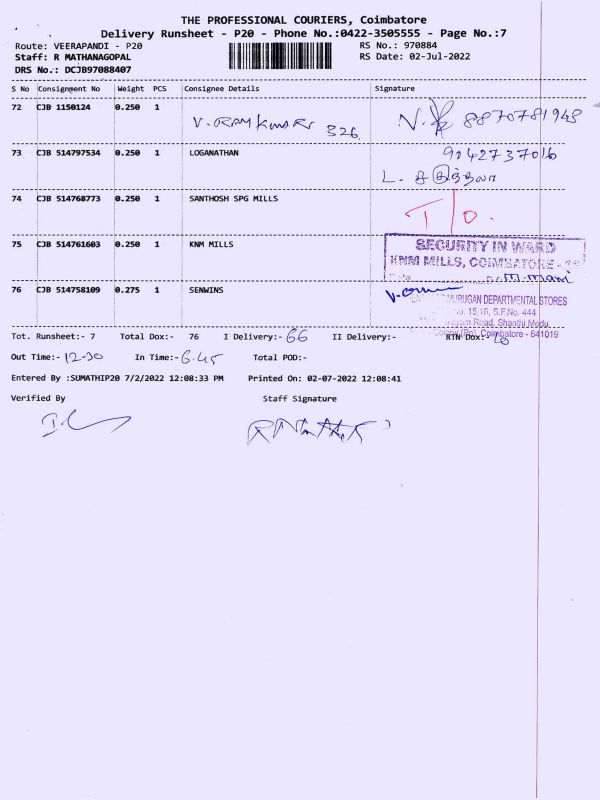 THE PROFESSIONAL COURIERS, Coimbatore
Delivery Runsheet - P20 - Phone No.:0422-3505555 - Page No.:7
Route: VEERAPANDI - P20 RS No.: 970884
Staff: R MATHANAGOPAL RS Date: 02-Jul-2022
DRS No.: DCJB97088407
S No Consignment No Weight PCS Consignee Details Signature
72 CJB 1150124 0.250 1 V. RAM KUMAR 326 8870781948
73 CJB 514797534 0.250 1 LOGANATHAN 9042737016
L.
74 CJB 514768773 0.250 1 SANTHOSH SPG MILLS T/O.
75 CJB 514761603 0.250 1 KNM MILLS SECURITY IN WARD
KNM MILLS, COIMBATORE -
Date m.mani
76 CJB 514758109 0.275 1 SENWINS
MURUGAN DEPARTMENTAL STORES
No. 15,16, S.F.No. 444
Road, Shanthi Medu
(Po), Coimbatore - 641019
Tot. Runsheet:- 7 Total Dox:- 76 I Delivery:- 66 II Delivery:- RTN Dox:- 10
Out Time:- 12-30 In Time:- 6.45 Total POD:-
Entered By :SUMATHIP20 7/2/2022 12:08:33 PM Printed On: 02-07-2022 12:08:41
Verified By Staff Signature